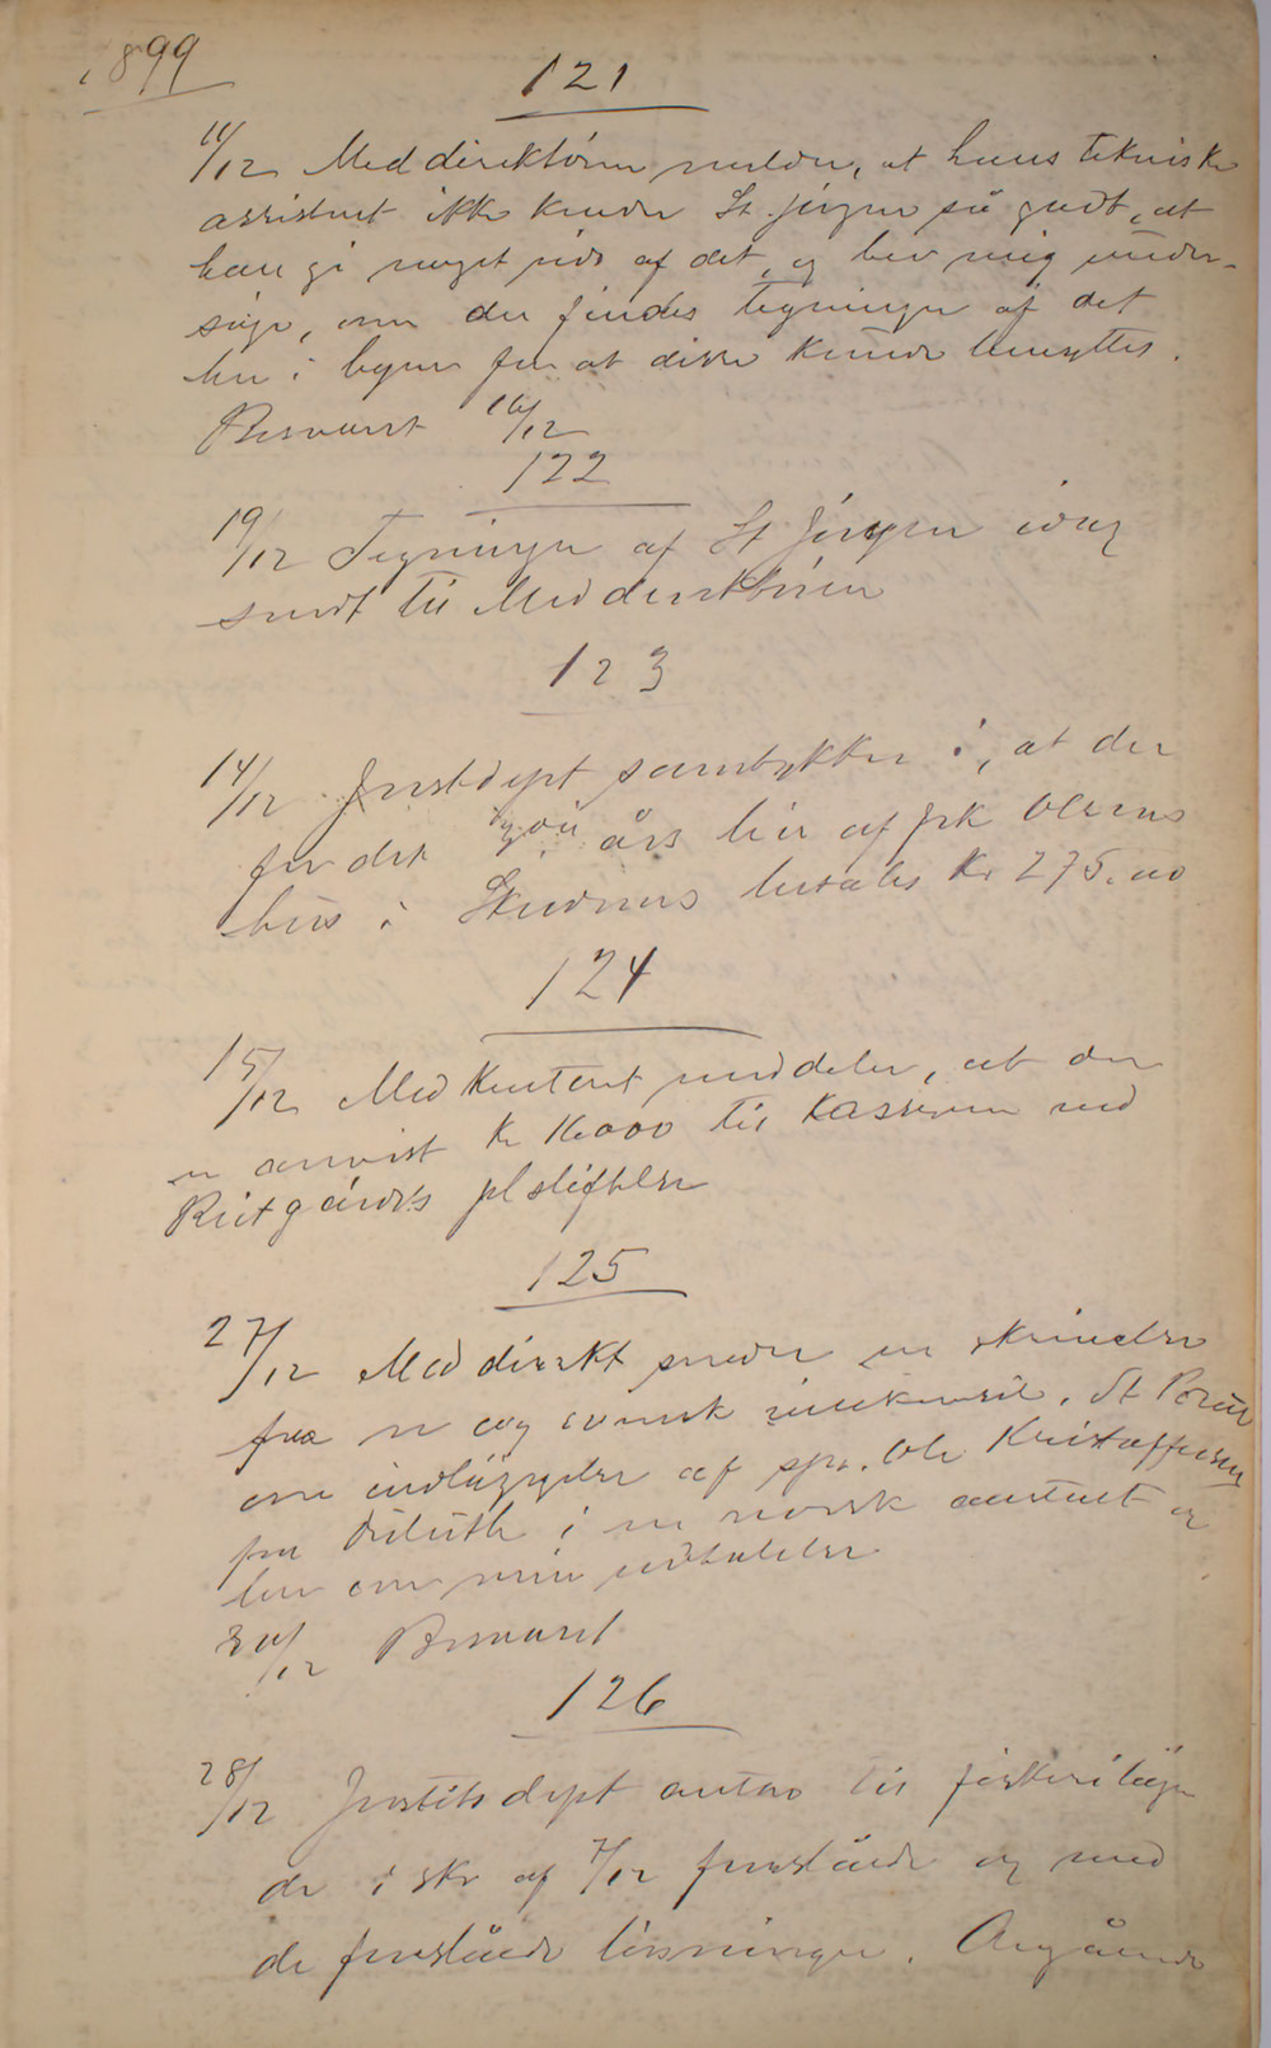 1899
121
11/12 Meddirektøren melder, at hans tekniske
assistent ikke kender St. Jørgen så godt, at
han gi noget rids af det, og bev mig under-
søge, om der findes tegninger af det
her i byen for at disse kunde benyttes.
Besvaret 16/12
122
19/12 Tegninger af St Jørgen idag
sendt til Meddirektøren
123
14/12 Justdept samtykker i, at der
for det års leie af fsk Olsens
hus i Skudnes betales Kr 275.00
124
15/12 Medkontoret meddeler, at der
er anvist Kr 16000 til kassereren ved
Reitgjærdets plstiftelse
125
27/12 Meddirekt sender en skrivelse
fra n og svensk St Petersb
om indlæggelse af sps. Ole Kristoffersen
fra Duluth i en norsk anstalt og
ber om min udtalelse
30/12 Besvaret
126
28/12 Justitsdept antar til fiskerilæger
de i skr af 7/12 foreslåede og med
de foreslåede lønninger. Angående